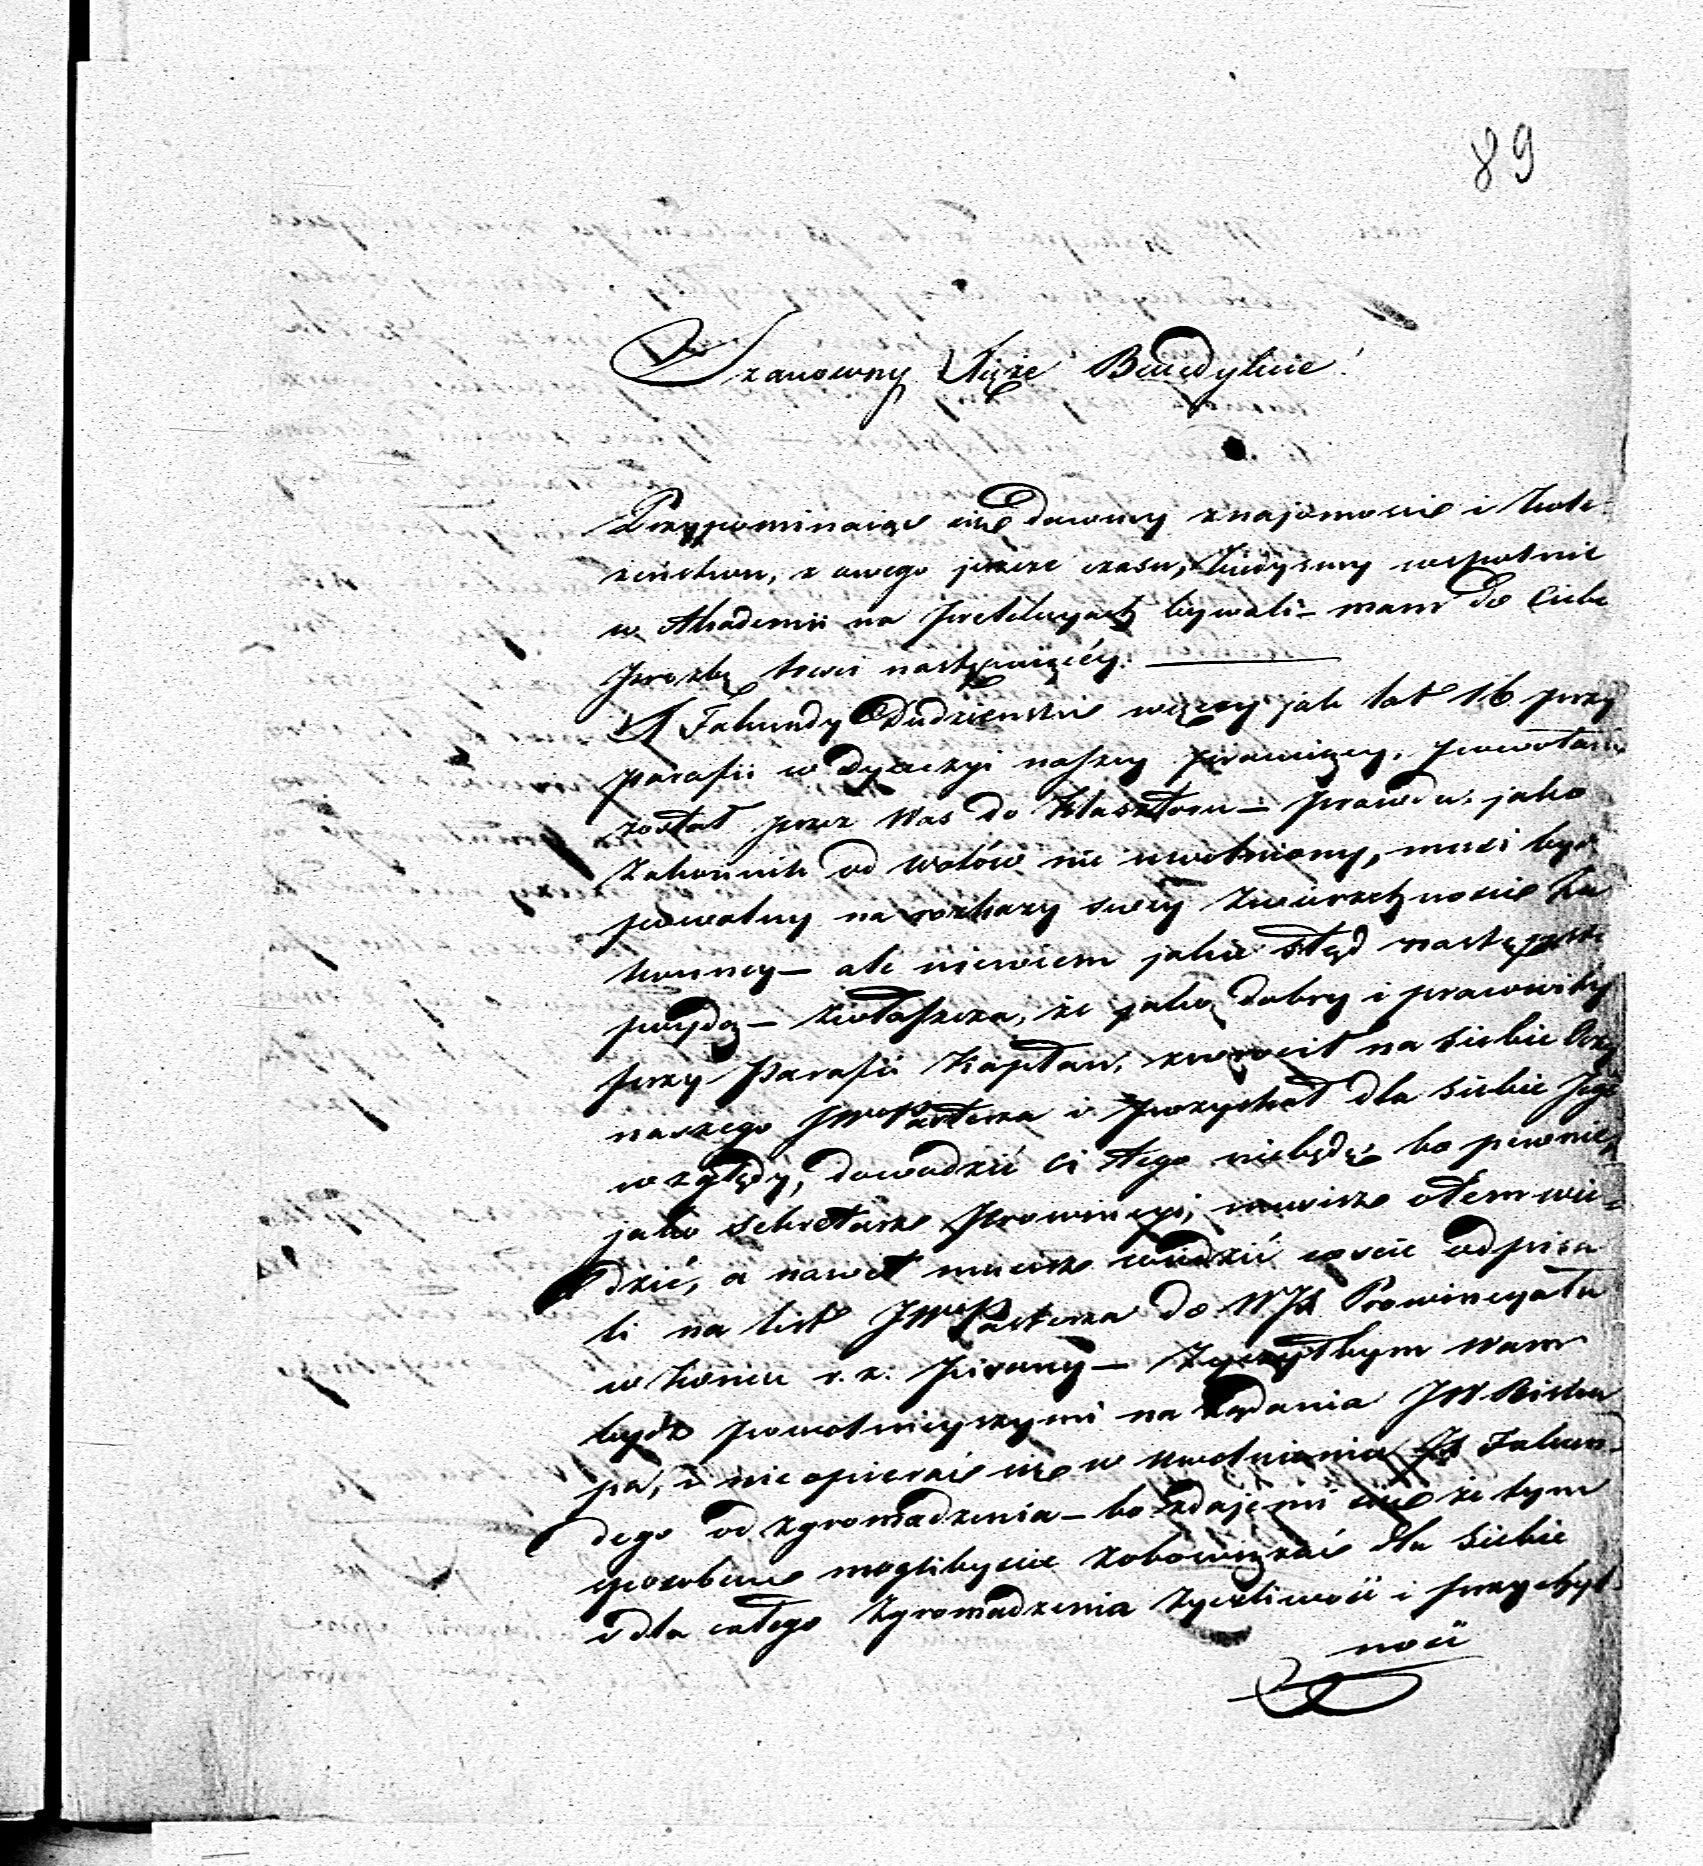 89
Szanowny Xięże Benedykcie!
Przypominając się dawney znajomości i kole-
żeństwu, z owego jeszcze czasu, kiedyśmy wspólnie
w Akademii na prelekcyach bywali – mam do Ciebie
prozbę treści następuiącéy: ——
X Fakundy Dudzieński więcey jak lat 16 przy
parafii w Dyecezyi naszey pracuiący, powołany
został przez Was do Klasztoru – prawda, jako
Zakonnik od wotów nie uwolniony, musi być
powolny na rozkazy swey Zwierzchności Za
konney – ale niewiem jakie ztąd następstwa
póydą – zwłaszcza, że jako dobry i pracowity
przy Parafii Kapłan, zwrócił na siebie Oczy
naszego JW Pasterza i pozyskał dla siebie Jego
względy, dowodzić Ci tego niebędę bo pewnie
jako Sekretarz Prowincyi, musisz o tem wie-
dzieć, a nawet musisz wiedzieć coście odpisa
li na list JW Pasterza do WJX Prowincyała
w końcu r. z. pisany – Życzyłbym Wam
bydź powolnieyszymi na żądania JW Bisku
pa, i nie opierać się w uwolnieniu JX Fakun-
dego od Zgromadzenia – bo zdaje mi się że tym
sposobem moglibyście zobowiązać dla siebie
i dla całego Zgromadzenia życzliwość i przychyl-
ność